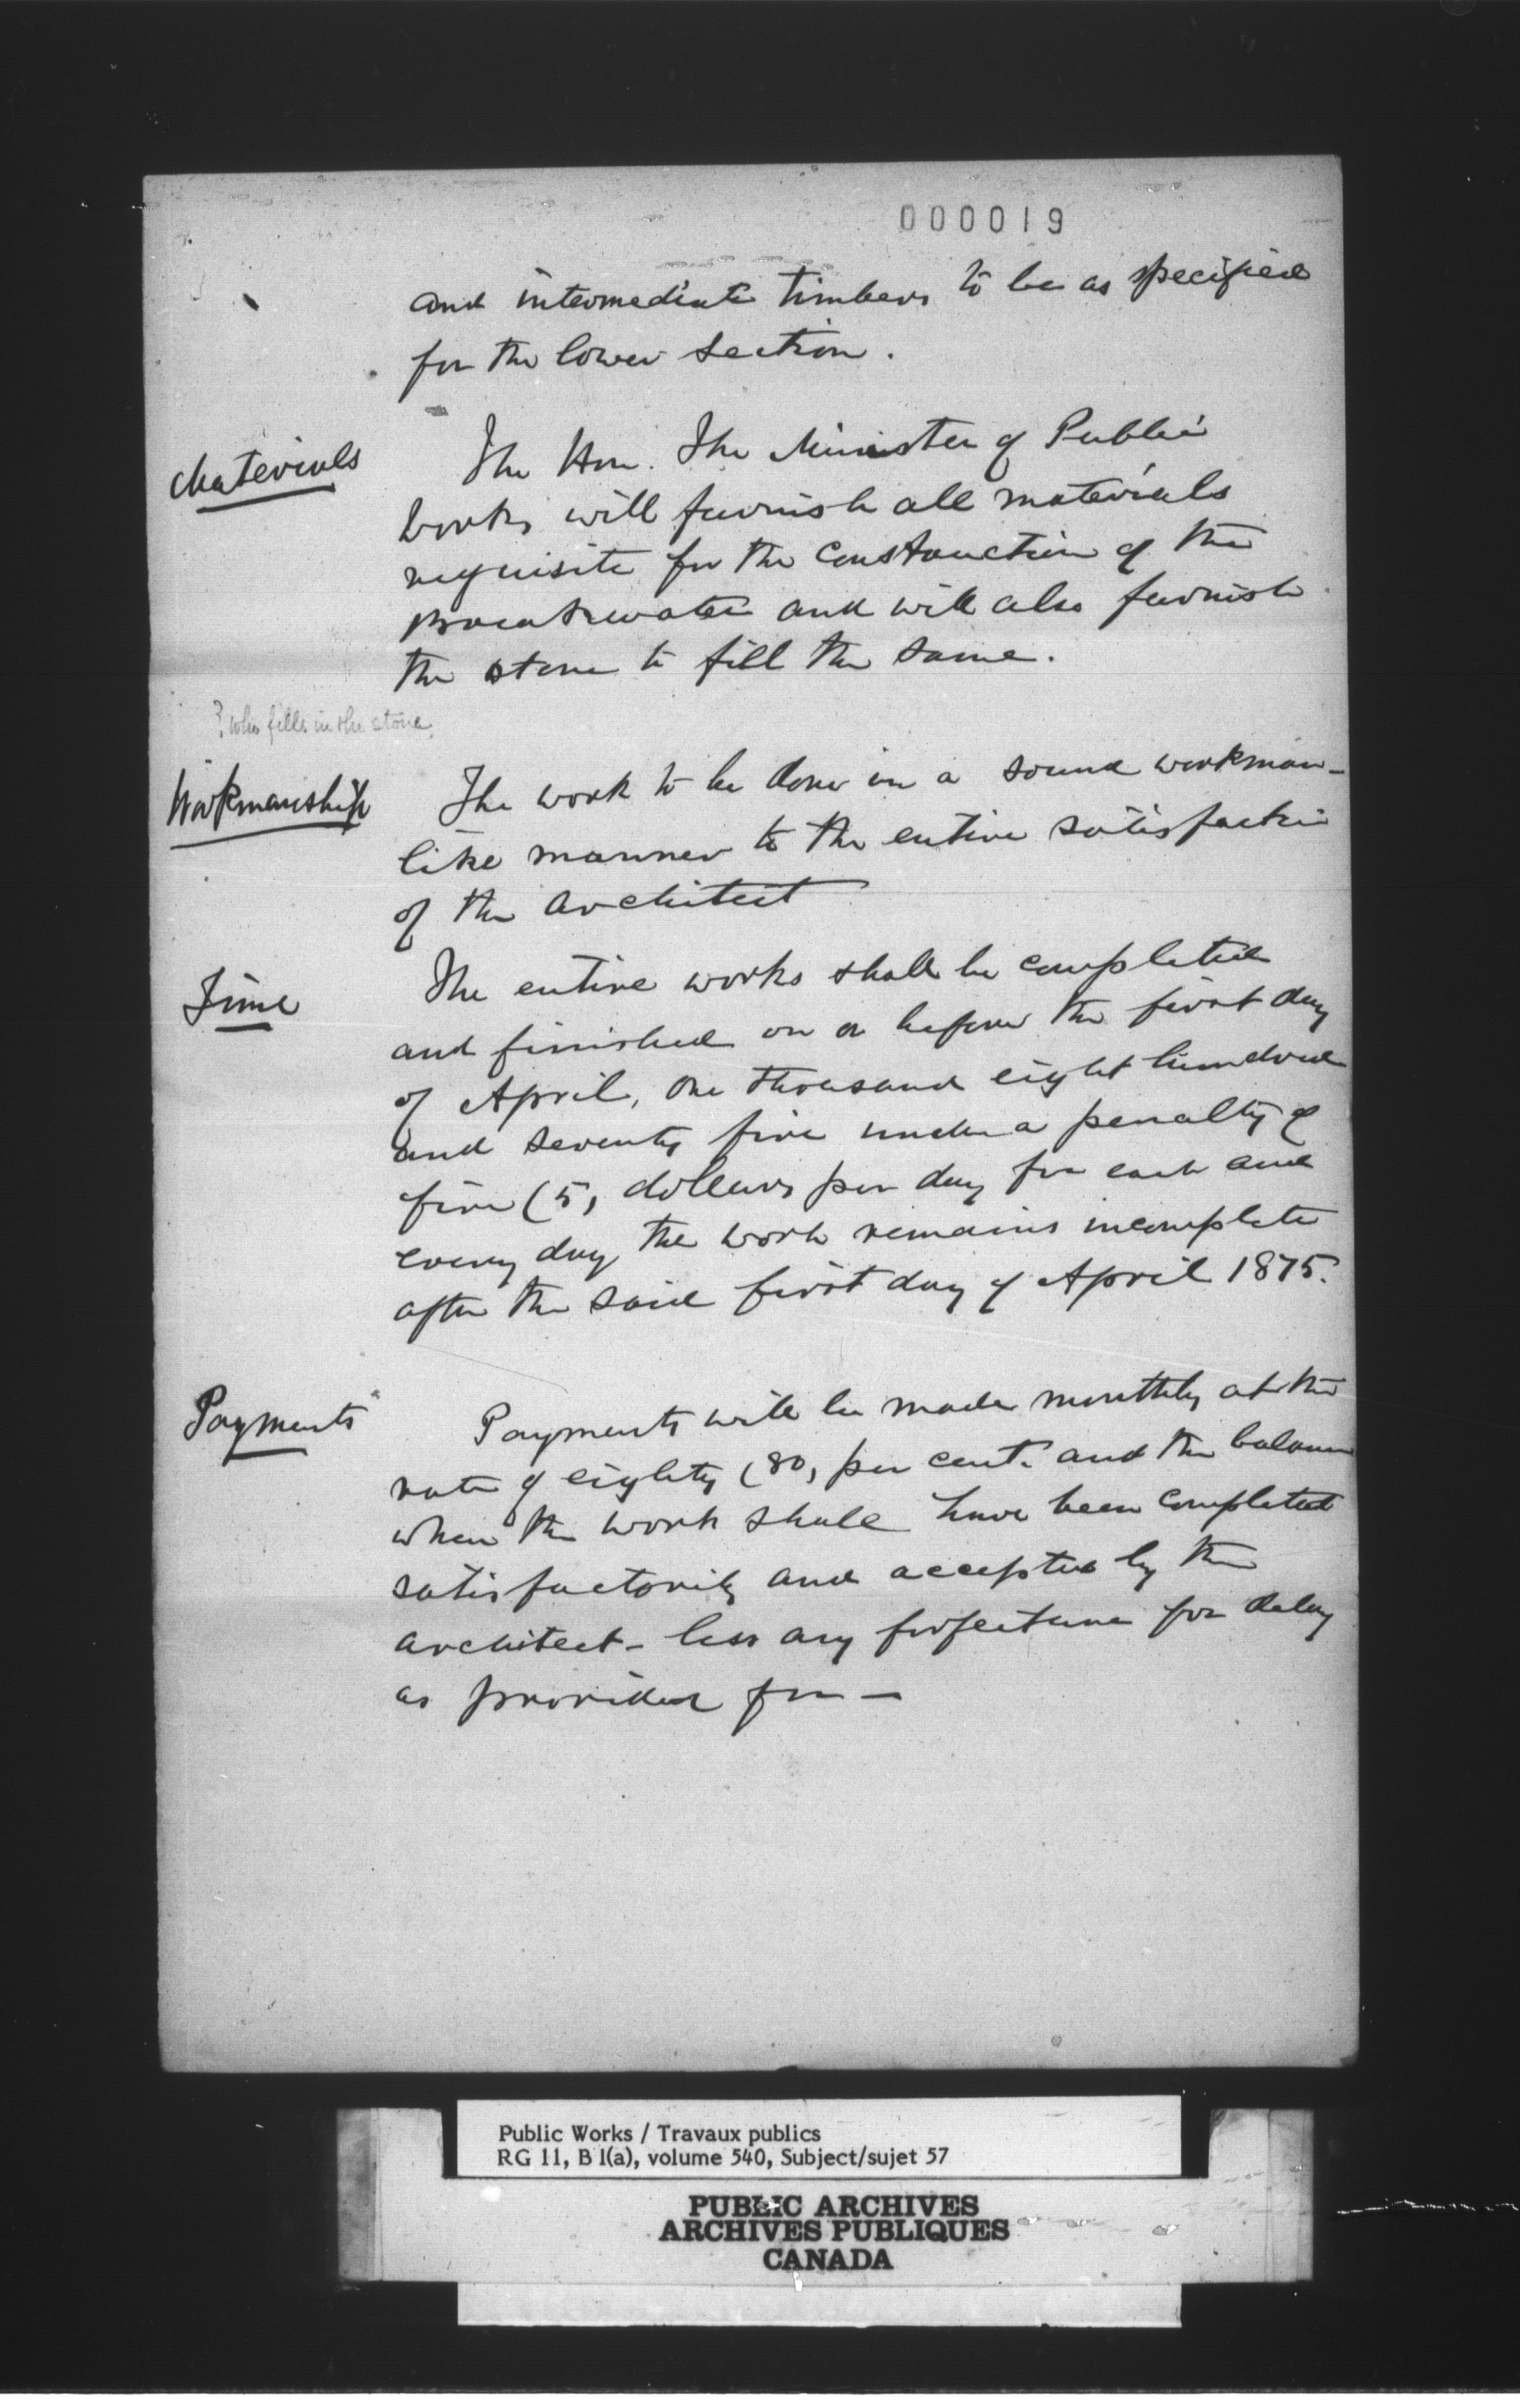 000019
and intermediate timbers to be as specified
for the lower section.
Materials
The Hon. The Minister of Public
Works will furnish all materials
requisite for the construction of the
Breakwater and will also furnish
the stone to fill the same.
? who fills in the stone.
Workmanship
The work to be done in a sound workman-
like manner to the entire satisfaction
of the architect
Time
The entire works shall be completed
and finished on or before the first day
of April, one thousand eight hundred
and seventy five under a penalty of
five (5) dollars per day for each and
every day the work remains incomplete
after the said first day of April 1875.
Payments
Payments will be made monthly at the
rate of eighty (80) per cent. and the balance
when the work shall have been completed
satisfactorily and accepted by the
architect - less any forfeiture for delay
as provided for —
Public Works / Travaux publics
RG 11, B 1(a), volume 540, Subject/sujet 57
PUBLIC ARCHIVES
ARCHIVES PUBLIQUES
CANADA